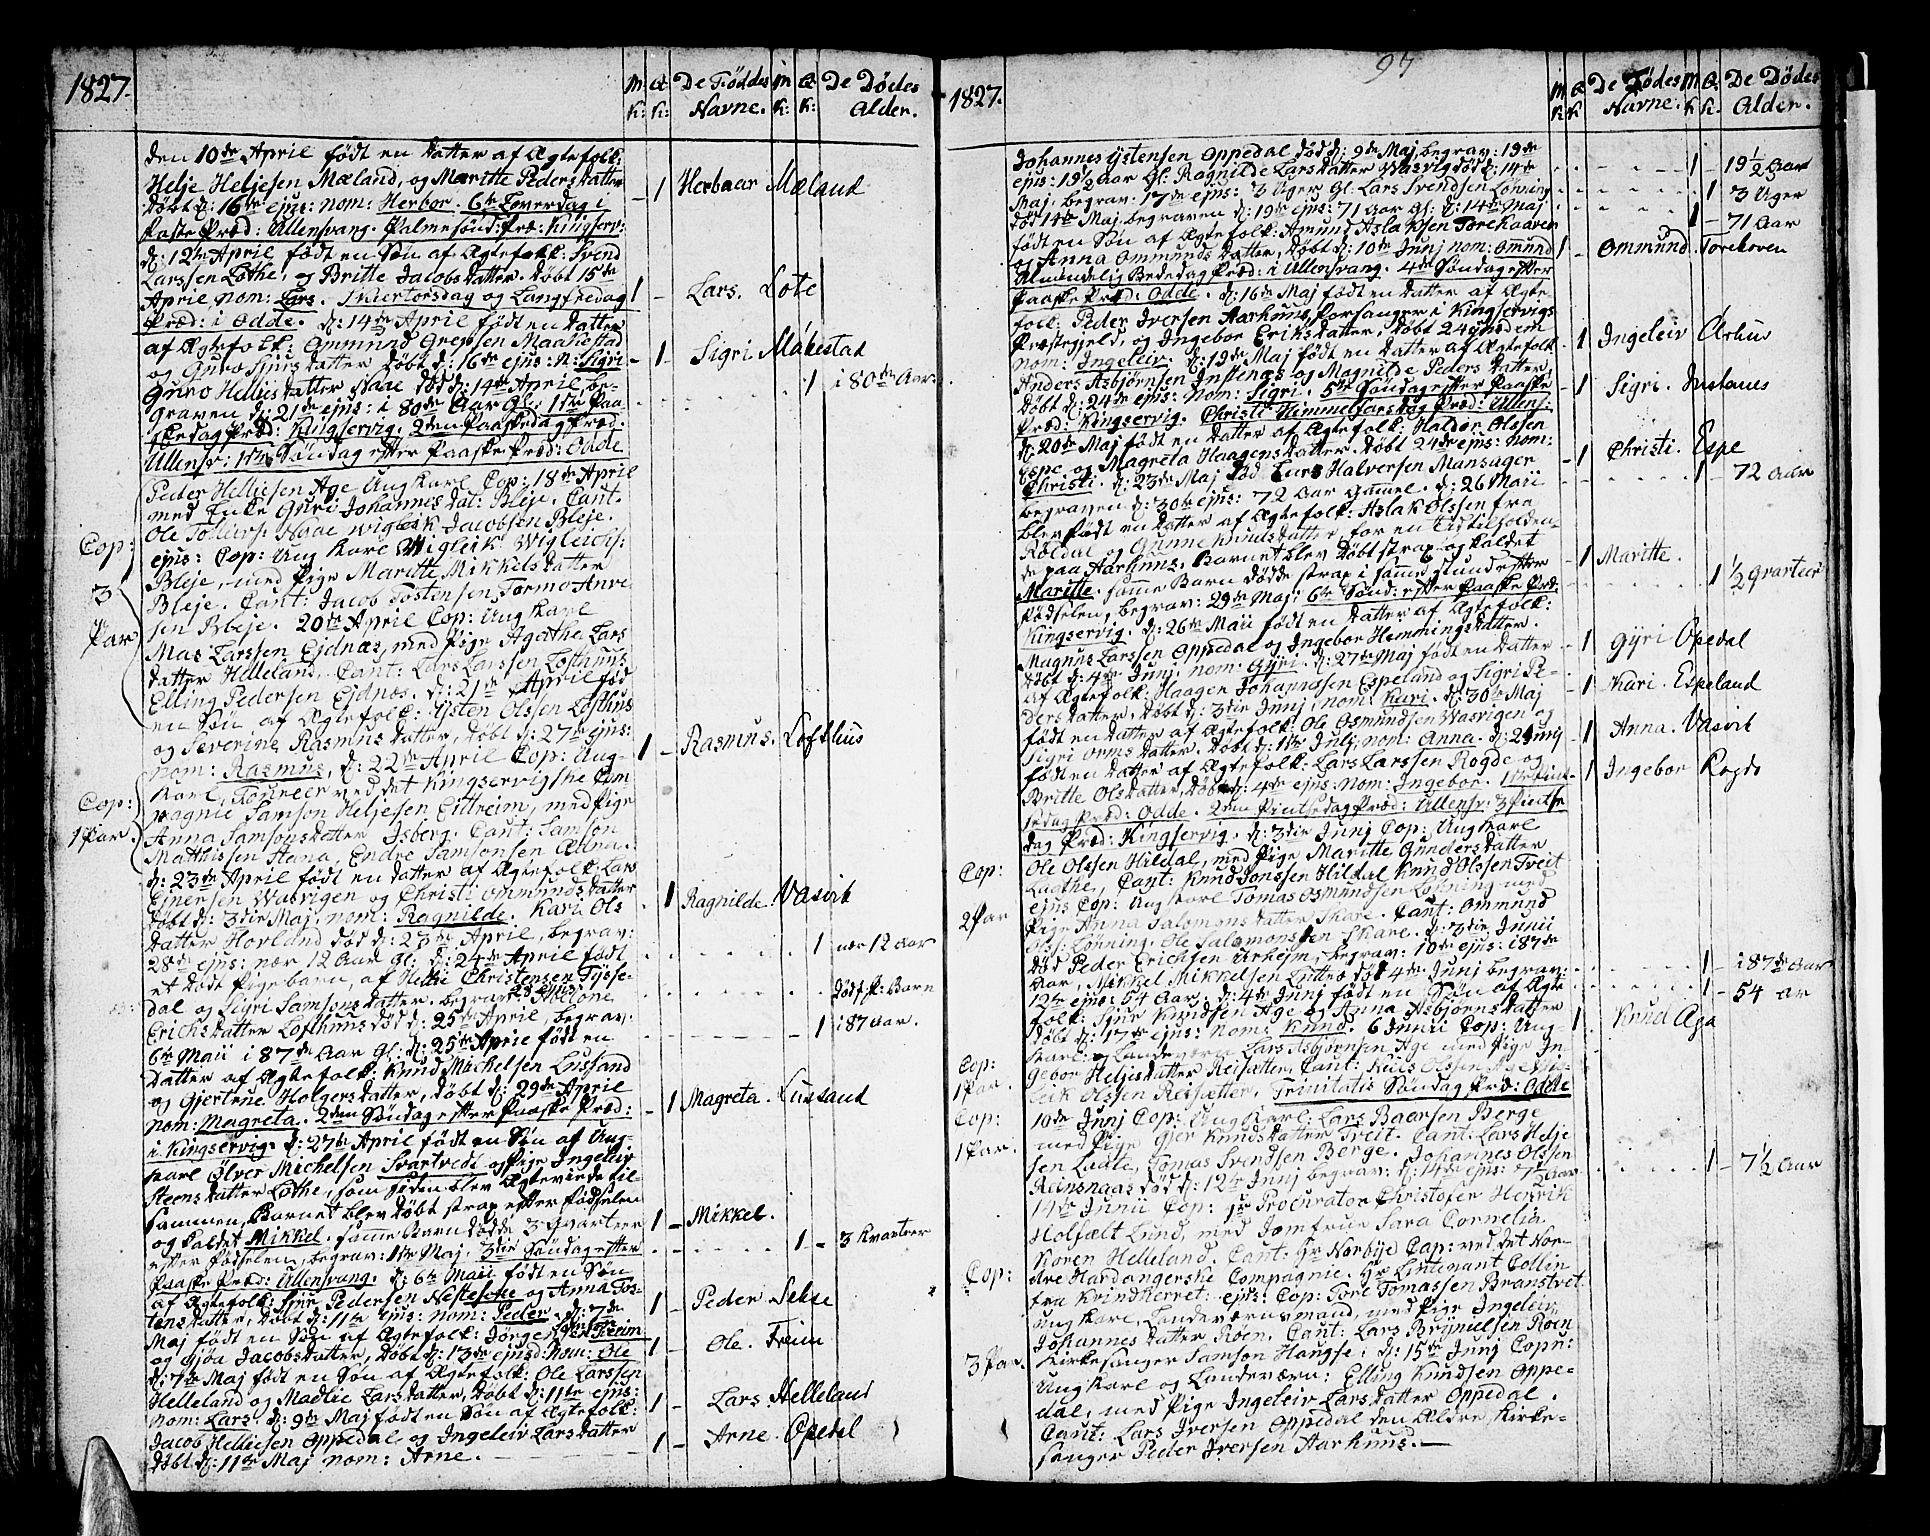 1827.
M K: Q K: De Føddes Navne. M K: Q K: De Dødes Alder.
den 10de April født en Datter af Ægtefolk:
Helje Heljesen Mæland, og Maritte Peders Datter
Døbt d: 16de ejus: nom: Herbor. 6te Løverdag i
Faste Præd: Ullensvang. Palmesönd: Præ: Kingserv:
d: 12te April født en Søn af Ægtefolk: Svend
Larssen Lothe, og Britte Jacobs Datter. Døbt 15de
April nom: Lars. Skiertorsdag og Langfredag
Præd: i Odde. d: 14de April født en Datter
af Ægtefolk: Ommund Gregsen Maakestad
og Guro Sjurs Datter Døbt d: 16de ejus: N: Sigri
Guro Hellies Datter Naae død d: 14de April, be-
graven d: 21de ejus: i 80de Aar Gl: 1ste Paa
skedag Præd: Kingservig. 2den Paaskedag Præd:
Ullensv: 1ste Søndag efter Paaske Præd: Odde
Peder Helliesen Age Ungkarl Cop: 18de April
med Enke Guri Johannes Dat: Bleje. Caut.
Ole Tollevs: Naae Wigleik Jacobsen Bleje.
ejus: Cop: Ung Karl Wigleik Wigleiks:
Bleje, med Pige Maritte Mikkels Datter
Bleje. Caut: Jacob Tostensen, Tormo Anve
sen Bleje. 20de April Cop: Ung Karl
Mas Larssen Ejdnæs, med Pige Agathe Lars
Datter Helleland. Caut: Lars Larssen Lofthuus
Elling Pedersen Ejdnæs. d: 21de April fød
en Søn af Ægtefolk: Ysten Olssen Lofthus
og Severine Rasmus Datter, Døbt d: 27de ejus:
nom: Rasmus, d: 22de April Cop: Ung-
karl, Foureer ved det Kingservigske Com
pagnie Samson Heljesen Eittreim, med Pige
Anna Samsons Datter Isberg. Caut: Samson
Matthissen Aana, Endre Samsonsen Ædna.
d: 23de April født en Datter af Ægtefolk: Lars
Ejnersen Wasvigen og Christi Ommunds Datter
Døbt d: 3die Maj, nom: Ragnilde. Kari Ols
Datter Hovland død d: 23de April, begrav:
28de ejus: nær 12 Aar gl: d: 24de April født
et dødt Pigebarn, af Helje Christensen Tysse-
dal og Sigri Samsons Datter. begrav: 28 ejus:
Ericks Datter Lofthuus død d: 25de April, begrav:
6te Maii i 87de Aar Gl: d: 25de April født en
Datter af Ægtefolk: Knud Michelsen Lusland
og Gjertene Holgers Datter, Døbt d: 29de April
nom: Magreta. 2den Søndag efter Paaske Præd:
i Kingservig. d: 27de April født en Søn af Ung-
karl Ölver Michelsen Svartvedt og Pige Ingeleiv
Steens Datter Lothe, som siden blev Ægtevie de til
sammen, Barnet blev Døbt strax efter Fødselen
og kaldet Mikkel. samme Barn dødde 3 Qvarteer
efter Fødselen, begrav: 1ste Maj. 3die Søndag efter
Paaske Præd: Ullensvang. d: 6te Maii født en Søn
af Ægtefolk: Sjur Pedersen Nesteseke og Anna Tos-
tens Datter, Døbt d: 11te ejus: nom: Peder. d: 7de
Maj født en Søn af Ægtefolk: Jørge Samson: Freim
og Gjøa Jacobs Datter, Døbt d: 13de ejusd: Nom: Ole
d: 7de Maj født en Søn af Ægtefolk: Ole Larssen
Helleland og Madlie Lars Datter, Døbt d: 11te ejus:
nom: Lars. d: 9de Maj født en Søn af Ægtefolk:
Jacob Helliesen Oppedal og Ingeleiv Lars Datter
Døbt d: 11te Maj nom: Arne.
Cop:
3
Par
Cop:
1 Par.
1 Herbaar Mæland
1 - Lars. Lote
- 1 Sigri Måkestad
1 i 80de Aar.
1 - Rasmus. Lofthus
1 Ragnilde Vasvik
1 nær 12 Aar
Dødf. P. Barn
- 1 i 87 Aar.
- 1 Magreta. Lussand
1 - Mikkel.
1 - 3 Kvarteer
1 - Peder Sekse
1 - Ole. Freim
1 - Lars Helleland
1 - Arne. Opedal
97
1827.
M K Q K De Fødes Navne. M K Q K: De Dødes Alder.
Johannes Ystensen Oppedal død d: 9de Maj, begrav: 19de
ejus: 19½ Aar Gl: Ragnilde Lars Datter Wasvig død d: 14de
Maj, begrav: 17de ejus: 3 Uger Gl: Lars Svendsen Lönning
død 14de Maj, begraven d: 19de ejus: 71 Aar Gl: d: 14de Maj
født en Søn af Ægtefolk: Amund Aslaksen Torehaaven
og Anna Ommunds Datter, Døbt d: 10de Junj nom: Omund
Almindelig Bededag Præd: i Ullensvang. 4de Søndag efter
Paaske Præd: Odde. d: 16de Maj født en Datter af Ægte
folk: Peder Iversen Aarhuus, Forsanger i Kingservigs
Præstegjeld, og Ingebor Eriks Datter, Døbt 24 ejusdem
nom: Ingeleiv. d: 19de Maj født en Datter af Ægtefolk
Anders Asbjørnsen Instenæs og Magnilde Peders Datter,
Døbt d: 24de ejus: nom: Sigri. 5te Søndag efter Paaske
Præd: Kingservig. Christi Himmelfarsdag Præd: Ullens:
d: 20de Maj født en Datter af Ægtefolk: Haldor Olssen
Espe, og Magreta Haagens Datter. Døbt 24de ejus: nom:
Christi. d: 23de Maj død Lars Halversen Mansager
begraven d: 30te ejus: 72 Aar Gammel. d: 26 Maii
blev født en Datter af Ægtefolk: Aslak Olssen fra
Røldal og Gunne Knuds Datter, for en Tid tilholden-
de paa Aarhuus. Barnet blev Døbt strax og kaldet
Maritte. samme Barn Dødde strax i samme stund efter
Fødselen, begrav: 29de Maj: 6te Sønd: efter Paaske Præd:
Kingservig. d: 26te Maii født en Datter af Ægtefolk:
Magnus Larssen Oppedal og Ingebor Hemmings Datter.
Døbt d: 4de Junj, nom: Gyri. d: 27de Maj født en Datter
af Ægtefolk: Haagen Johannessen Espeland og Sigri Pe-
ders Datter, Døbt d: 3die Junj, nom: Kari. d: 30te Maj
født en Datter af Ægtefolk: Ole Osmundsen Wasvigen og
Sigri Orms Datter. Døbt d: 1ste Julj, nom: Anna. d: 2 Junj
født en Datter af Ægtefolk: Lars Larssen Rogde og
Britte Ols Datter, Døbt d: 4de ejus: Nom: Ingebor. 1ste Pint-
sedag Præd: Odde. 2den Pintsedag Præd: Ullensv: 3 Pintse
dag Præd: Kingservig. d: 3die Junj Cop: Ung Karl
Ole Olssen Hildal, med Pige Maritte Gunders Datter
Laathe, Caut: Knud Jonssen Hildal Knud Olssen Freit
ejus Cop: Ung Karl Tomas Osmundsen Løfning med
Pige Anna Salomons Datter Skare. Caut: Ommund
Ols: Lønning. Ole Salomonssen Skare. d: 3die Junii
død Peder Erichsen Urheim, begrav: 10de ejus: i 87de
Aar, Mikkel Mikkelsen Lutro død 4de Junj begrav:
12te ejus: 54 Aar. d: 4de Junj født en Søn af Ægte
folk: Sjur Knudsen Age og Anna Asbjørns Datter
Døbt d: 17de ejus: nom: Knud. 6 Junii Cop: Ung-
karl: og Landeværn Lars Asbjørnsen Age med Pige In
gebor Heljes Datter Reisæter, Caut: Niels Olssen Age, Vig-
leik Olssen Reisæter, Trinitatis Søndag Præd: Odde
10de Junj Cop: Ung Karl: Lars Baarsen Berge
med Pige Gjer Knuds Datter Freit. Caut: Lars Helje
sen Ladte, Tomas Svendsen Berge. Johannes Olssen
Reinsnaas død d: 12te Junj begrav: d: 14de ejus: 7½ Aar
14de Junii Cop: Hr Procurator Christofer Henrik
Holfælt Lund, med Jomfrue Sara Cornelia
Koren Helleland. Caut: Hr Norbye Cap: ved det Nor-
dre Hardangerske Compagnie. Hr Lieutenant Collin
fra Kvindherret: ejus: Cop: Tore Tomassen Branstvet
Ung Karl, Landeværnsmand, med Pige Ingeleiv
Johannes Datter Röen, Caut: Lars Brynielsen Röen
Kirkesanger Samson Haugse: d: 15de Junj Copu:
Ung Karl og Landeværn: Elling Knudsen Oppe-
dal, med Pige Ingeleiv Lars Datter Oppedal.
Caut: Lars Iversen Oppedal den Ældre, Kirke-
sanger Peder Iversen Aarhuus.
Cop:
2 Par
Cop:
1 Par.
Cop:
1 Par.
Cop:
3 Par.
1 - 19½ Aar
1 3 Uger
1 - 71 Aar
1 - Ommund. Torehoven
1 Ingeleiv Århus
1 Sigri. Instenes
- 1 Christi. Espe
1 - 72 Aar
- 1 Maritte.
1 ½ Qvarteer
- 1 Gÿri Opedal
- 1 Kari. Espeland
1 Anna. Vasvik
1 Ingebor Rogde
1 - i 87de Aar
1 - 54 Ar
1. Knud Aga
1 - 7½ Aar